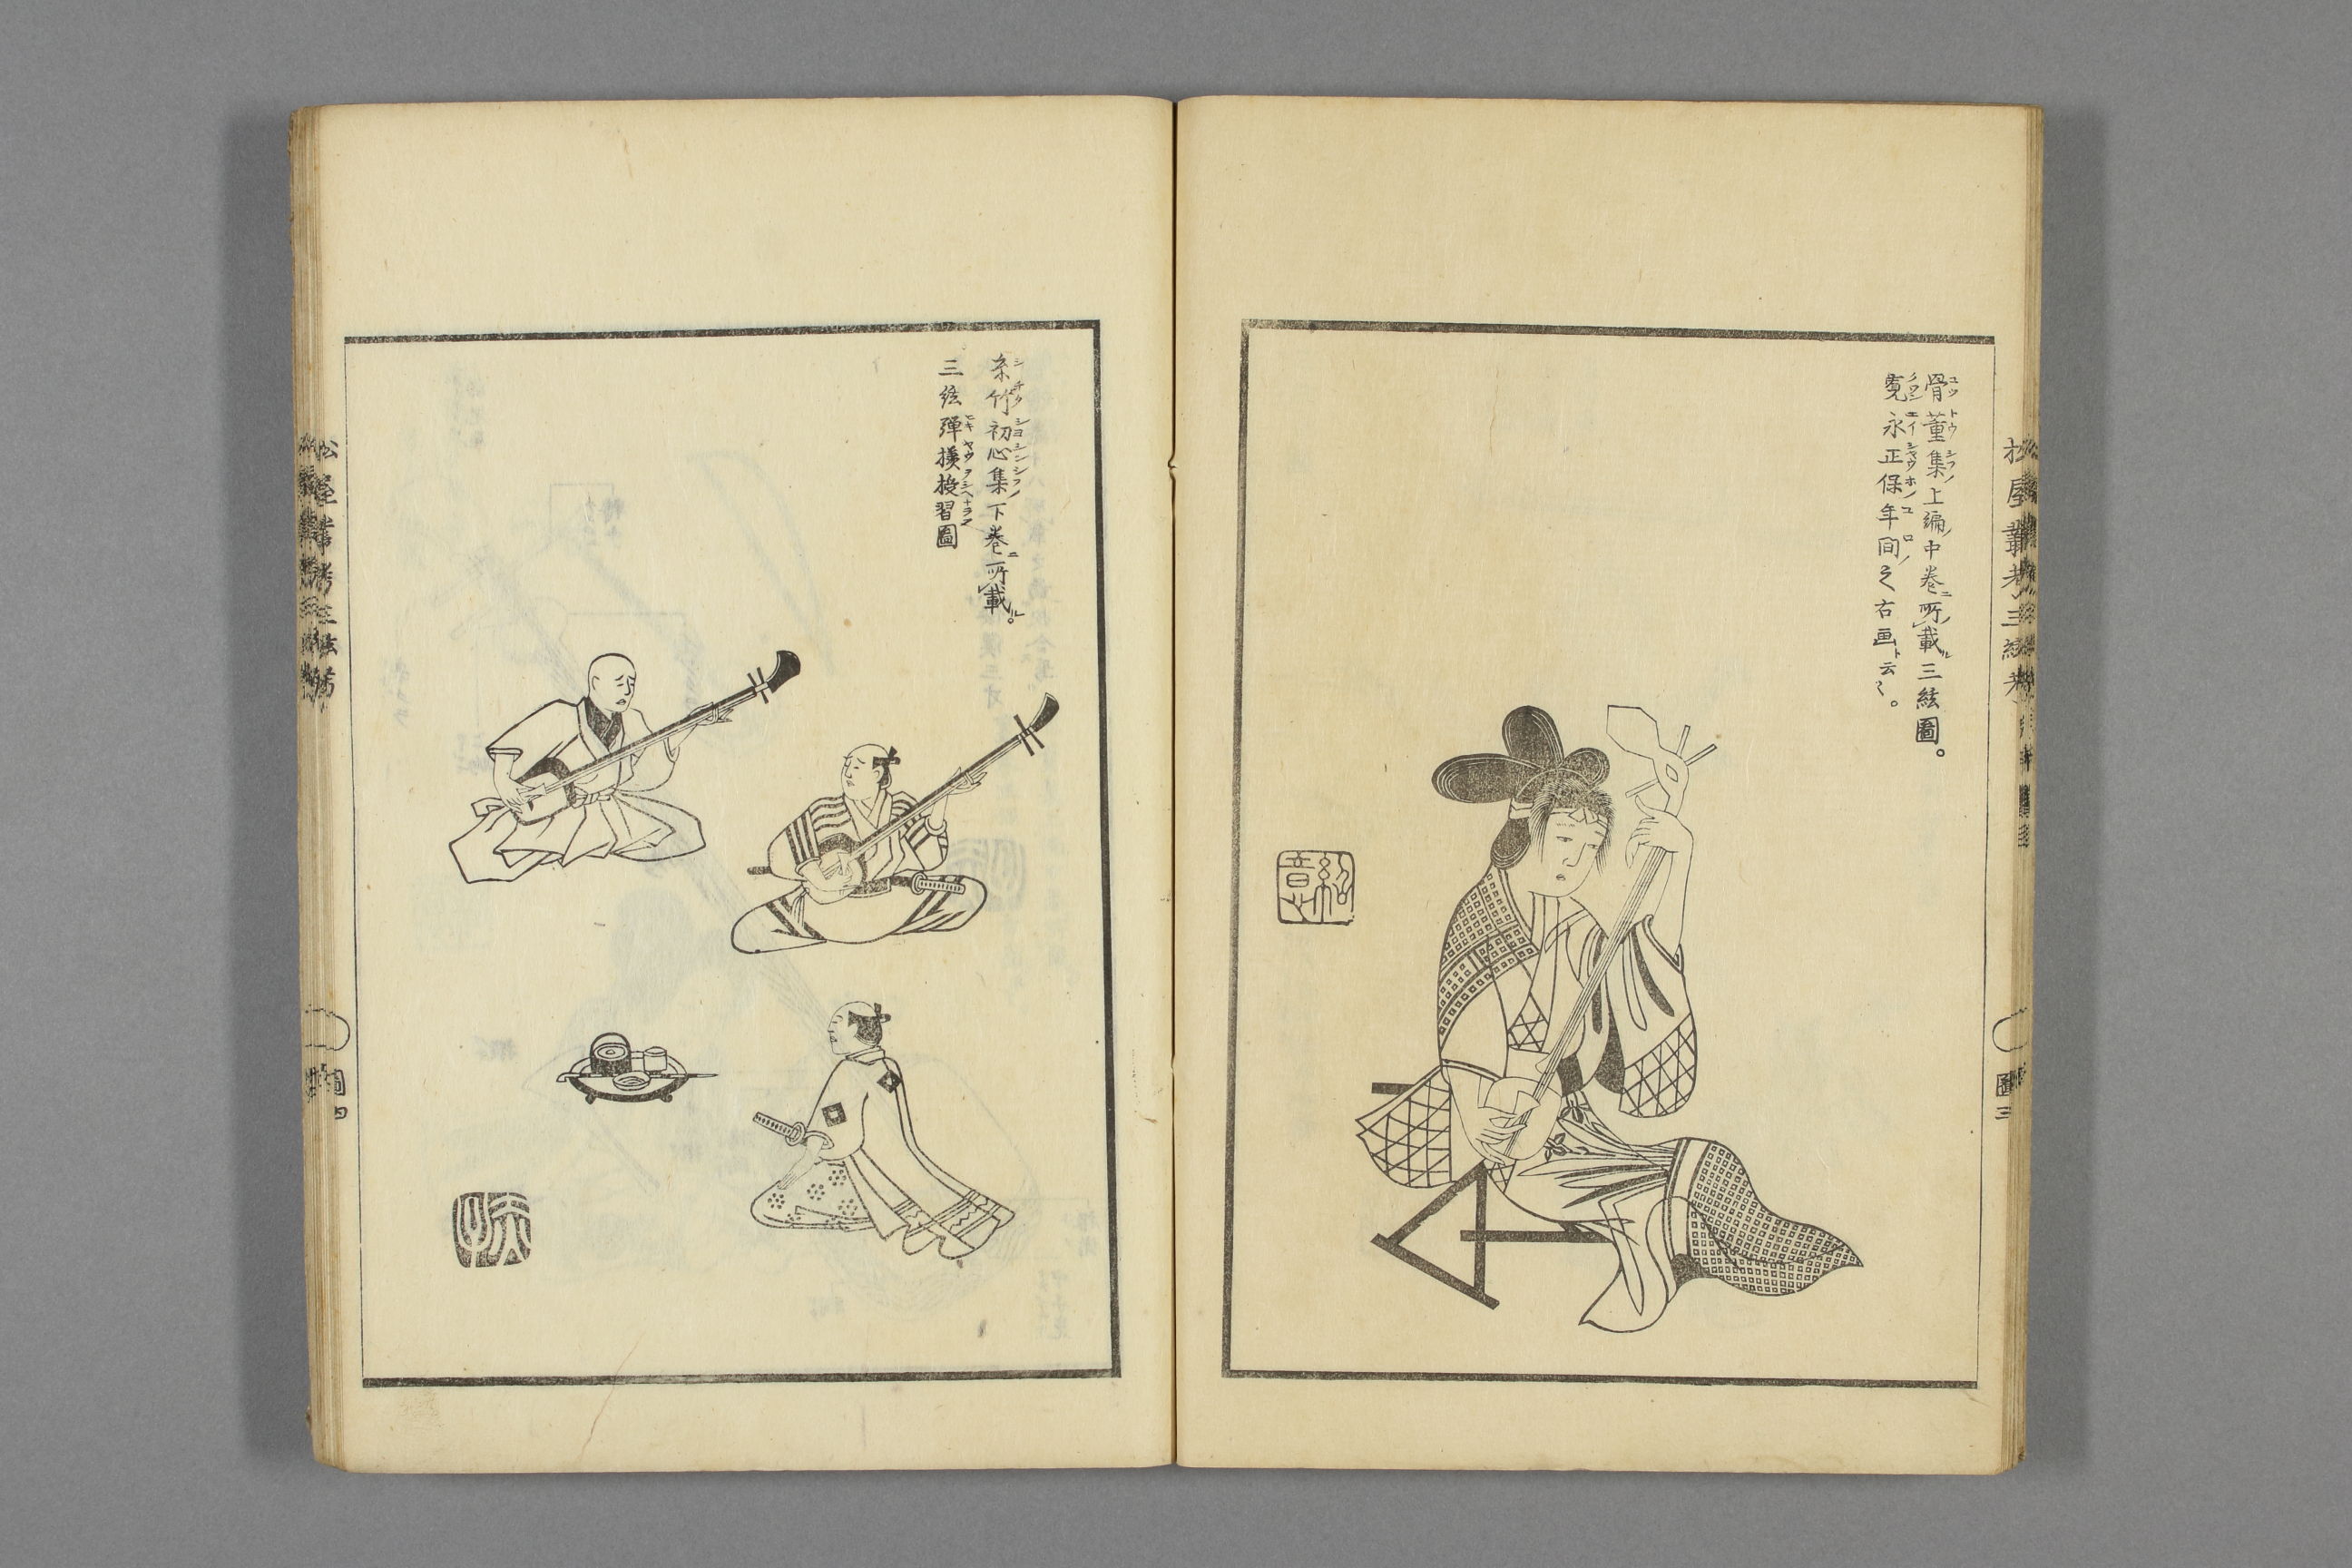 骨董集上編中巻ニ所載ル三絃圖。
寛永正保年間之古画ト云々。
紹意
糸竹初心集下巻ニ所載ル。
三絃彈様授習圖
松屋叢考三絃考
圖三
圖四